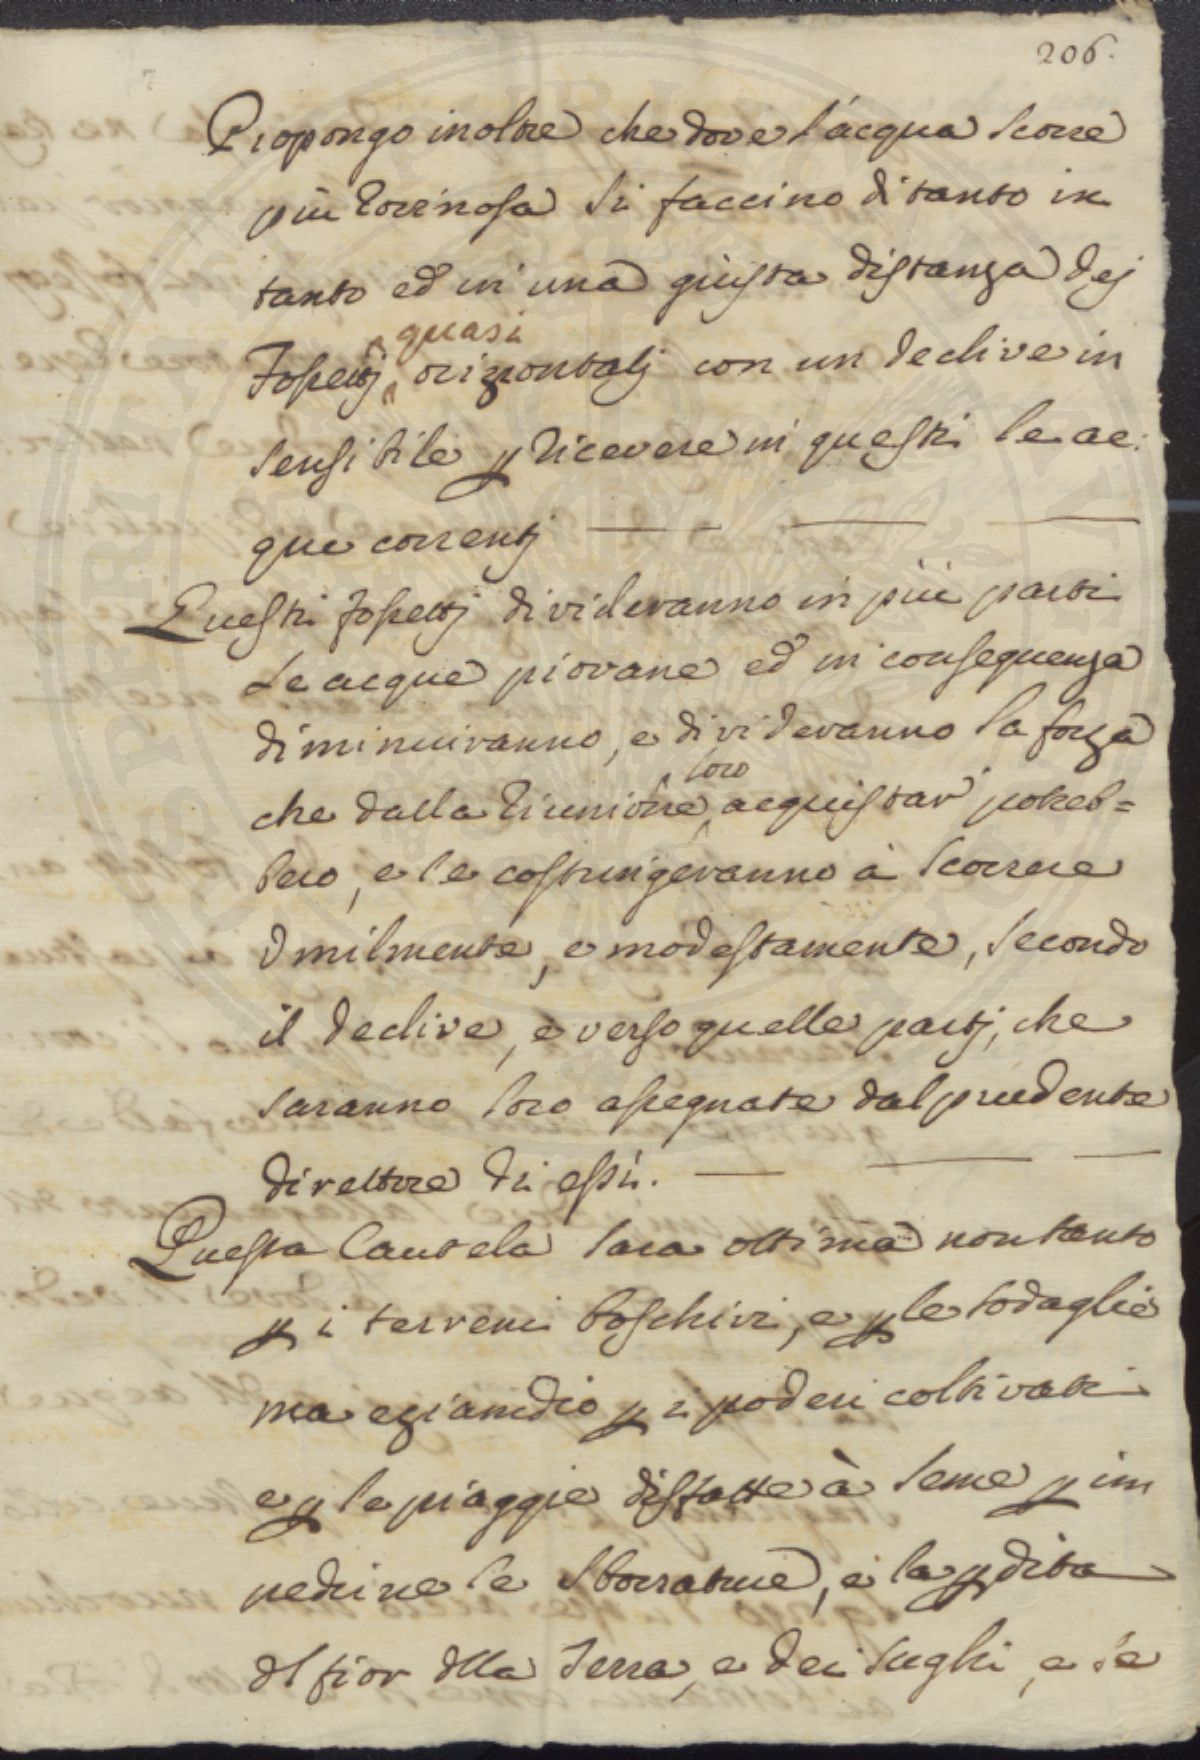 206.
Propongo inoltre che dove l'acqua scorre
più torrinosa si faccino di tanto in
tanto ed in una giusta distanza dej
quasi
Fossettj orizzontalj con un declive in
sensibile p ricevere in questi le ac:
que correntj
Questi fossettj divideranno in più parti
Le acque piovane ed in conseguenza
diminuiranno, e divideranno la forza
loro
che dalla riunione acquistar potreb=
bero, e le costringeranno à scorrere
Umilmente, e modestamente, secondo
il declive, e verso quelle partj, che
saranno loro assegnate dal prudente
direttore di essi.
Questa Cautela sara ottima non tanto
p i terreni boschivi, e p le sodaglie
ma eziamdio p i poderi coltivati
e p le piaggie disfatte à seme p im
pedirne le sborrature, e la pdita
dl fior dlla Terra, e dei sughi, e se